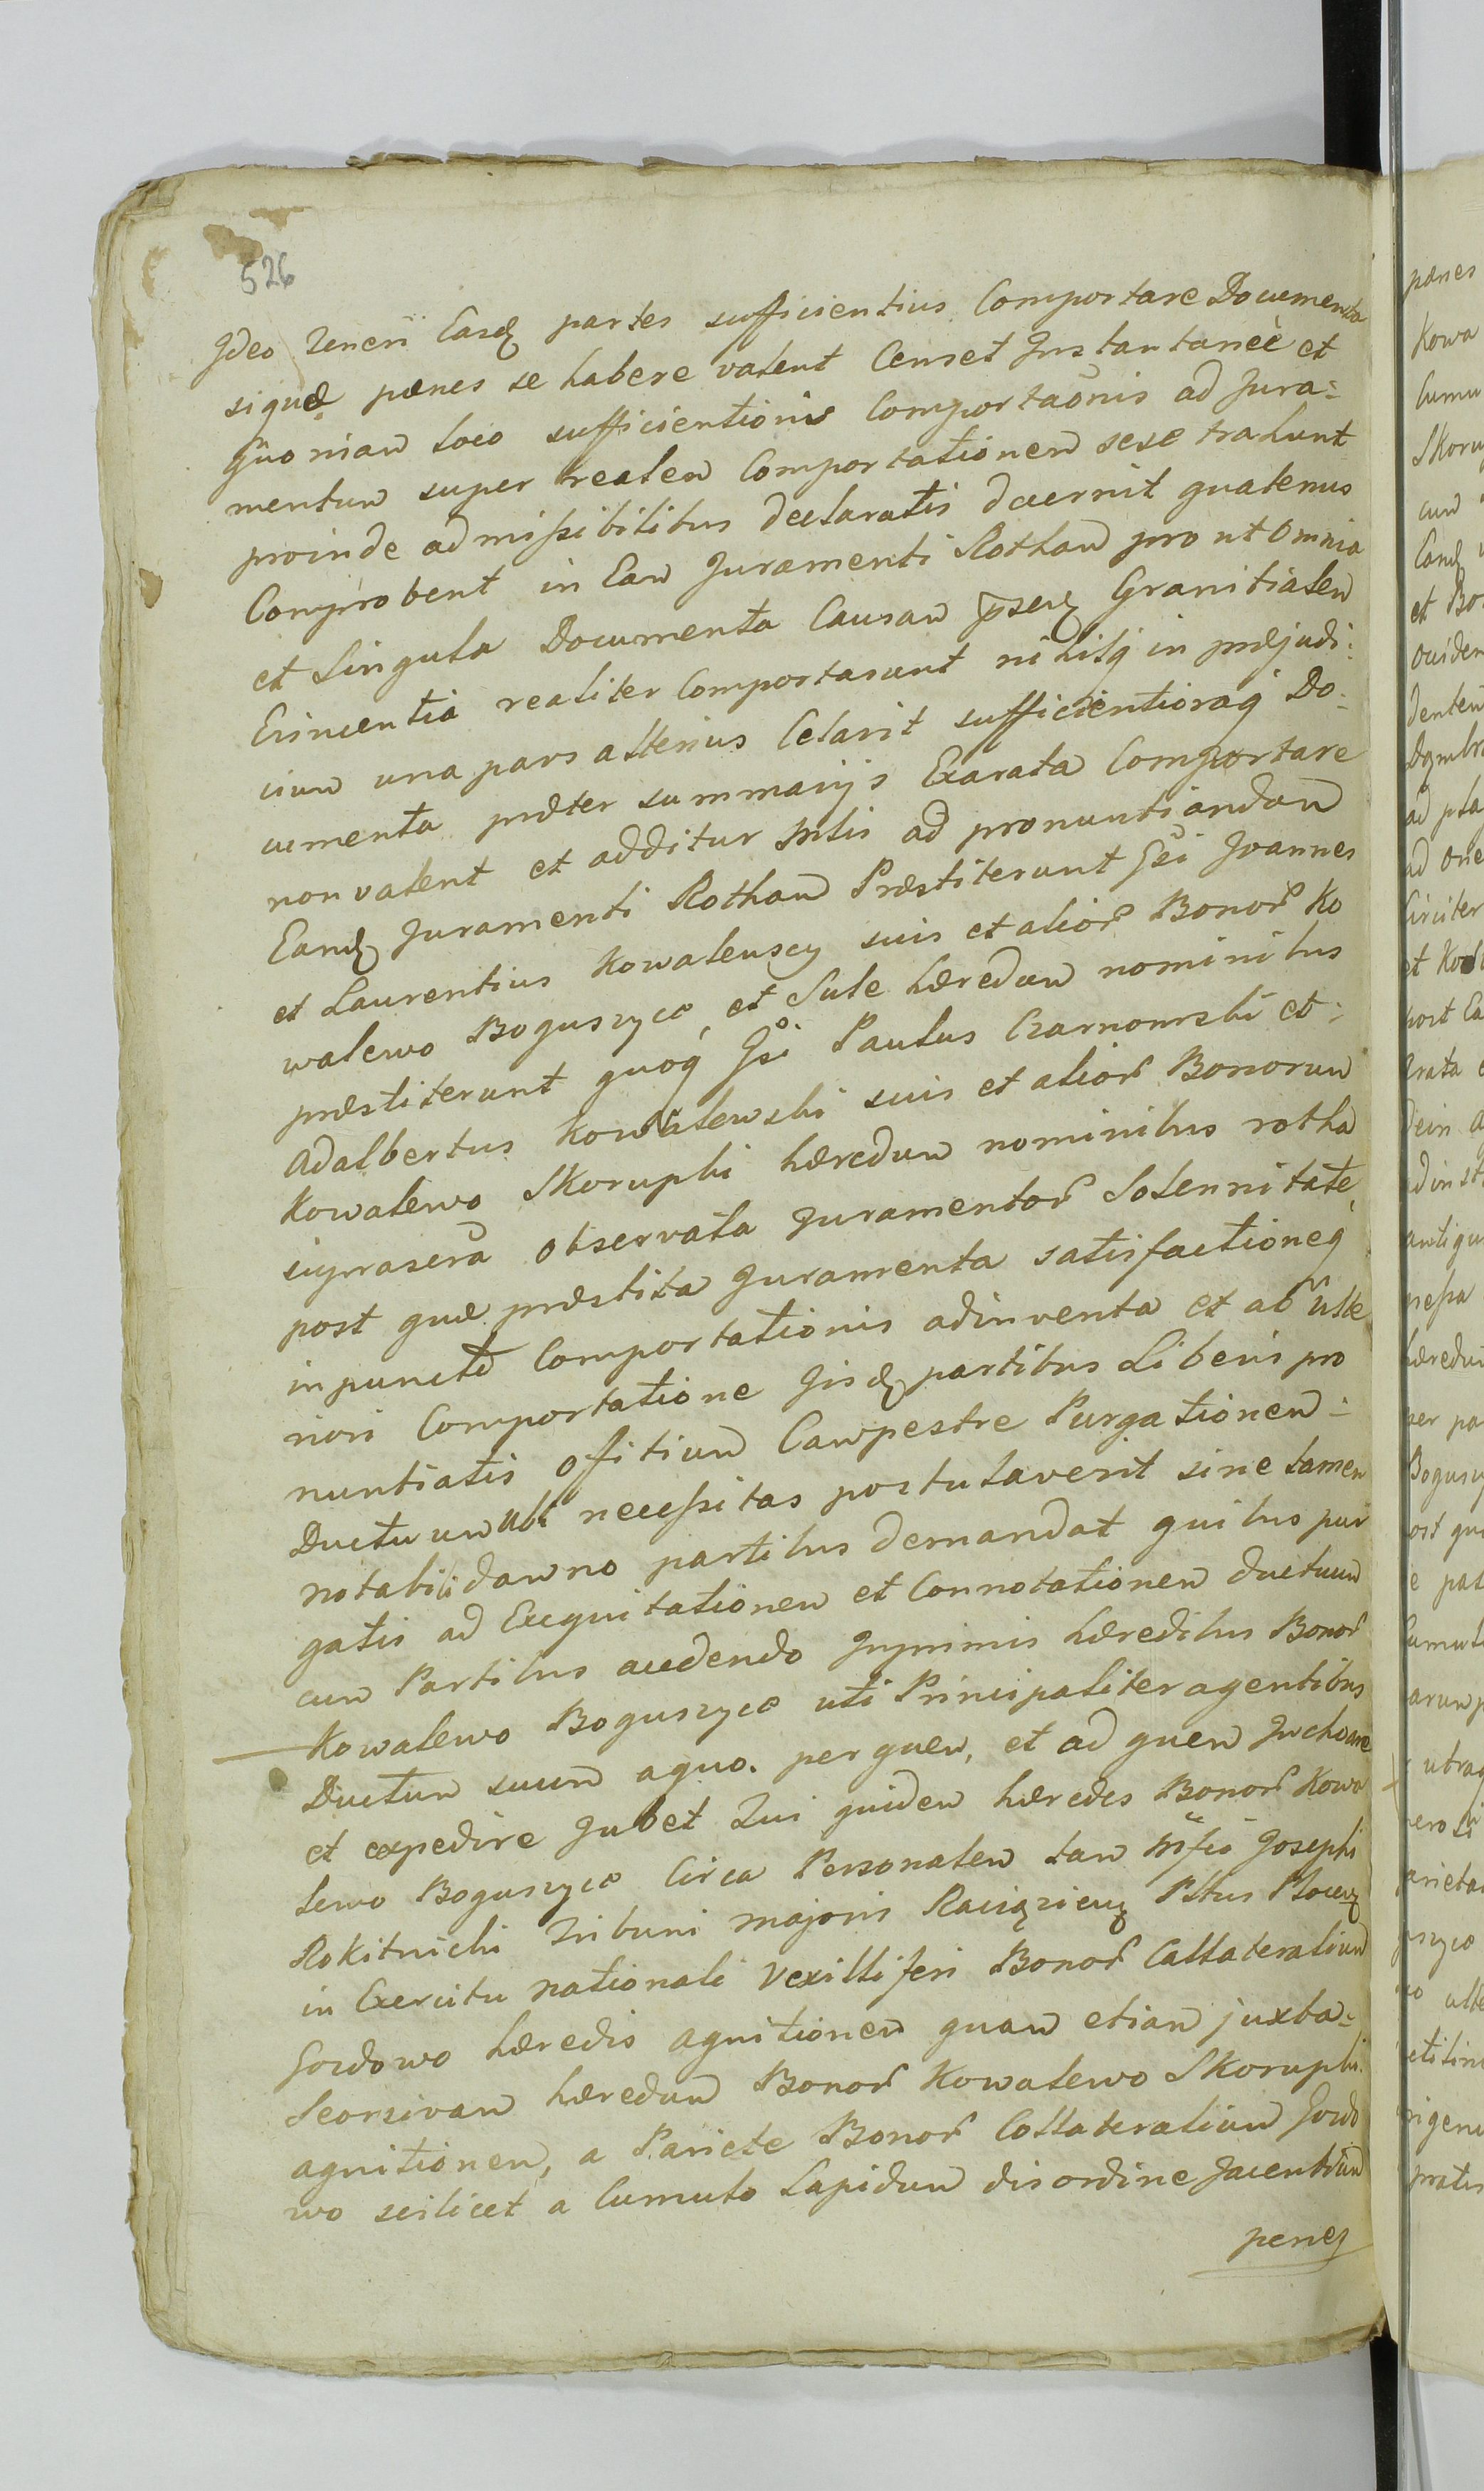 526
Jdeo Teneri Easdꝫ partes sufficientius Comportare Documenta
siquæ pænes se habere valent Censet Jnstantaneè et
quoniam loco sufficientioris Comportaõnis ad Jura=
mentum super realem Comportationem sese trahunt
proinde admissibilibus declaratis decernit quatenus
Comprobent in Eam Juramenti Rotham pro ut Omnia
et Singula Documenta Causam p̃sen꜄ Granitialem
Evincentia realiter Comportarunt nihilq̃ in præjudi:
cium una pars alterius Celavit sufficientioraq̃ Do=
cumenta præter summarijs Exarata Comportare
non valent et additur Mlis ad pronuntiandam
Eandꝫ Juramenti Rotham Præstiterunt Gsi Joannes
et Laurentius Kowalewscy suis et alior̃ Bonor̃ Ko
walewo Boguszyce, et Sule hæredum nominibus
præstiterunt quoq̃ Gsi Paulus Czarnowski et:
Adalbertus Kowalewski suis et alior̃ Bonorum
Kowalewo Skorupki hæredum nominibus rotha
suprasc̃ra observata Juramentor̃ Solennitate
post quæ præstita Juramenta satisfactioneq̃
in puncto Comportationis adinventa et ab Ulte
riori Comportatione Jisdꝫ partibus Liberis pro
nuntiatis Offitium Campestre Purgationem:
Ductuum ubi necessitas postulaverit sine tamen
notabili damno partibus demandat quibus pur
gatis ad Exequitationem et Connotationem ductuum
cum Partibus accedendo Jnprimis hæredibus Bonor̃
Kowalewo Boguszyce uti Principaliter agentibus
Ductum suum aquo. per quem, et ad quem Jnchoare
et expedire Jubet Qui quidem hæredes Bonor̃ Kowa
lewo Boguszyce Circa Personalem tam Mfci Josephi
Rokitnicki Tribuni majoris Raciązien꜄ Pltus Plocen꜄
in Exercitu nationali Vexilliferi Bonor̃ Collateralium
Gozdowo hæredis agnitionem quam etiam juxta=
Seorsivam hæredum Bonor̃ Kowalewo Skorupki.
agnitionem, a Pariete Bonor̃ Collateralium Gozdo
wo scilicet a Cumulo Lapidum disordine Jacentium
penes